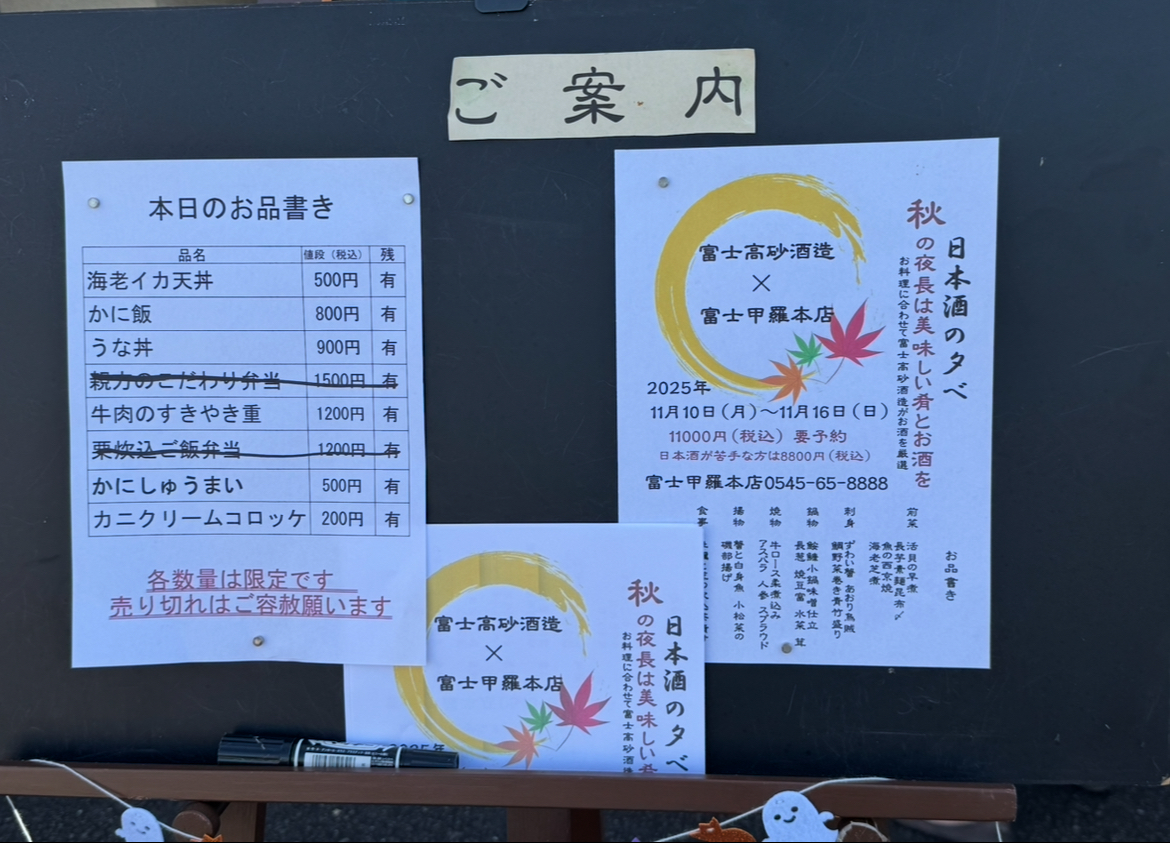 ご案内
本日のお品書き
品名 値段（税込） 残
海老イカ天丼 500円 有
かに飯 800円 有
うな丼 900円 有
親方のこだわり弁当 1500円 有
牛肉のすきやき重 1200円 有
栗炊込ご飯弁当 1200円 有
かにしゅうまい 500円 有
カニクリームコロッケ 200円 有
各数量は限定です
売り切れはご容赦願います
日本酒の夕べ
秋の夜長は美味しい肴とお酒を
お料理に合わせて富士高砂酒造がお酒を厳選
富士高砂酒造
×
富士甲羅本店
2025年
11月10日（月）～11月16日（日）
11000円（税込）要予約
日本酒が苦手な方は8800円（税込）
富士甲羅本店0545-65-8888
お品書き
前菜
活貝の旨煮
長芋素麺昆布〆
魚の西京焼
海老芝煮
刺身
ずわい蟹 あおり烏賊
鯛野菜巻き青竹盛り
鍋物
鮟鱇小鍋味噌仕立
長葱 焼豆富 水菜 茸
焼物
牛ロース柔煮込み
アスパラ 人参 スプラウド
揚物
蟹と白身魚 小松菜の
磯部揚げ
食事
日本酒の夕べ
秋の夜長は美味しい肴
お料理に合わせて富士高砂酒造
富士高砂酒造
×
富士甲羅本店
2025年